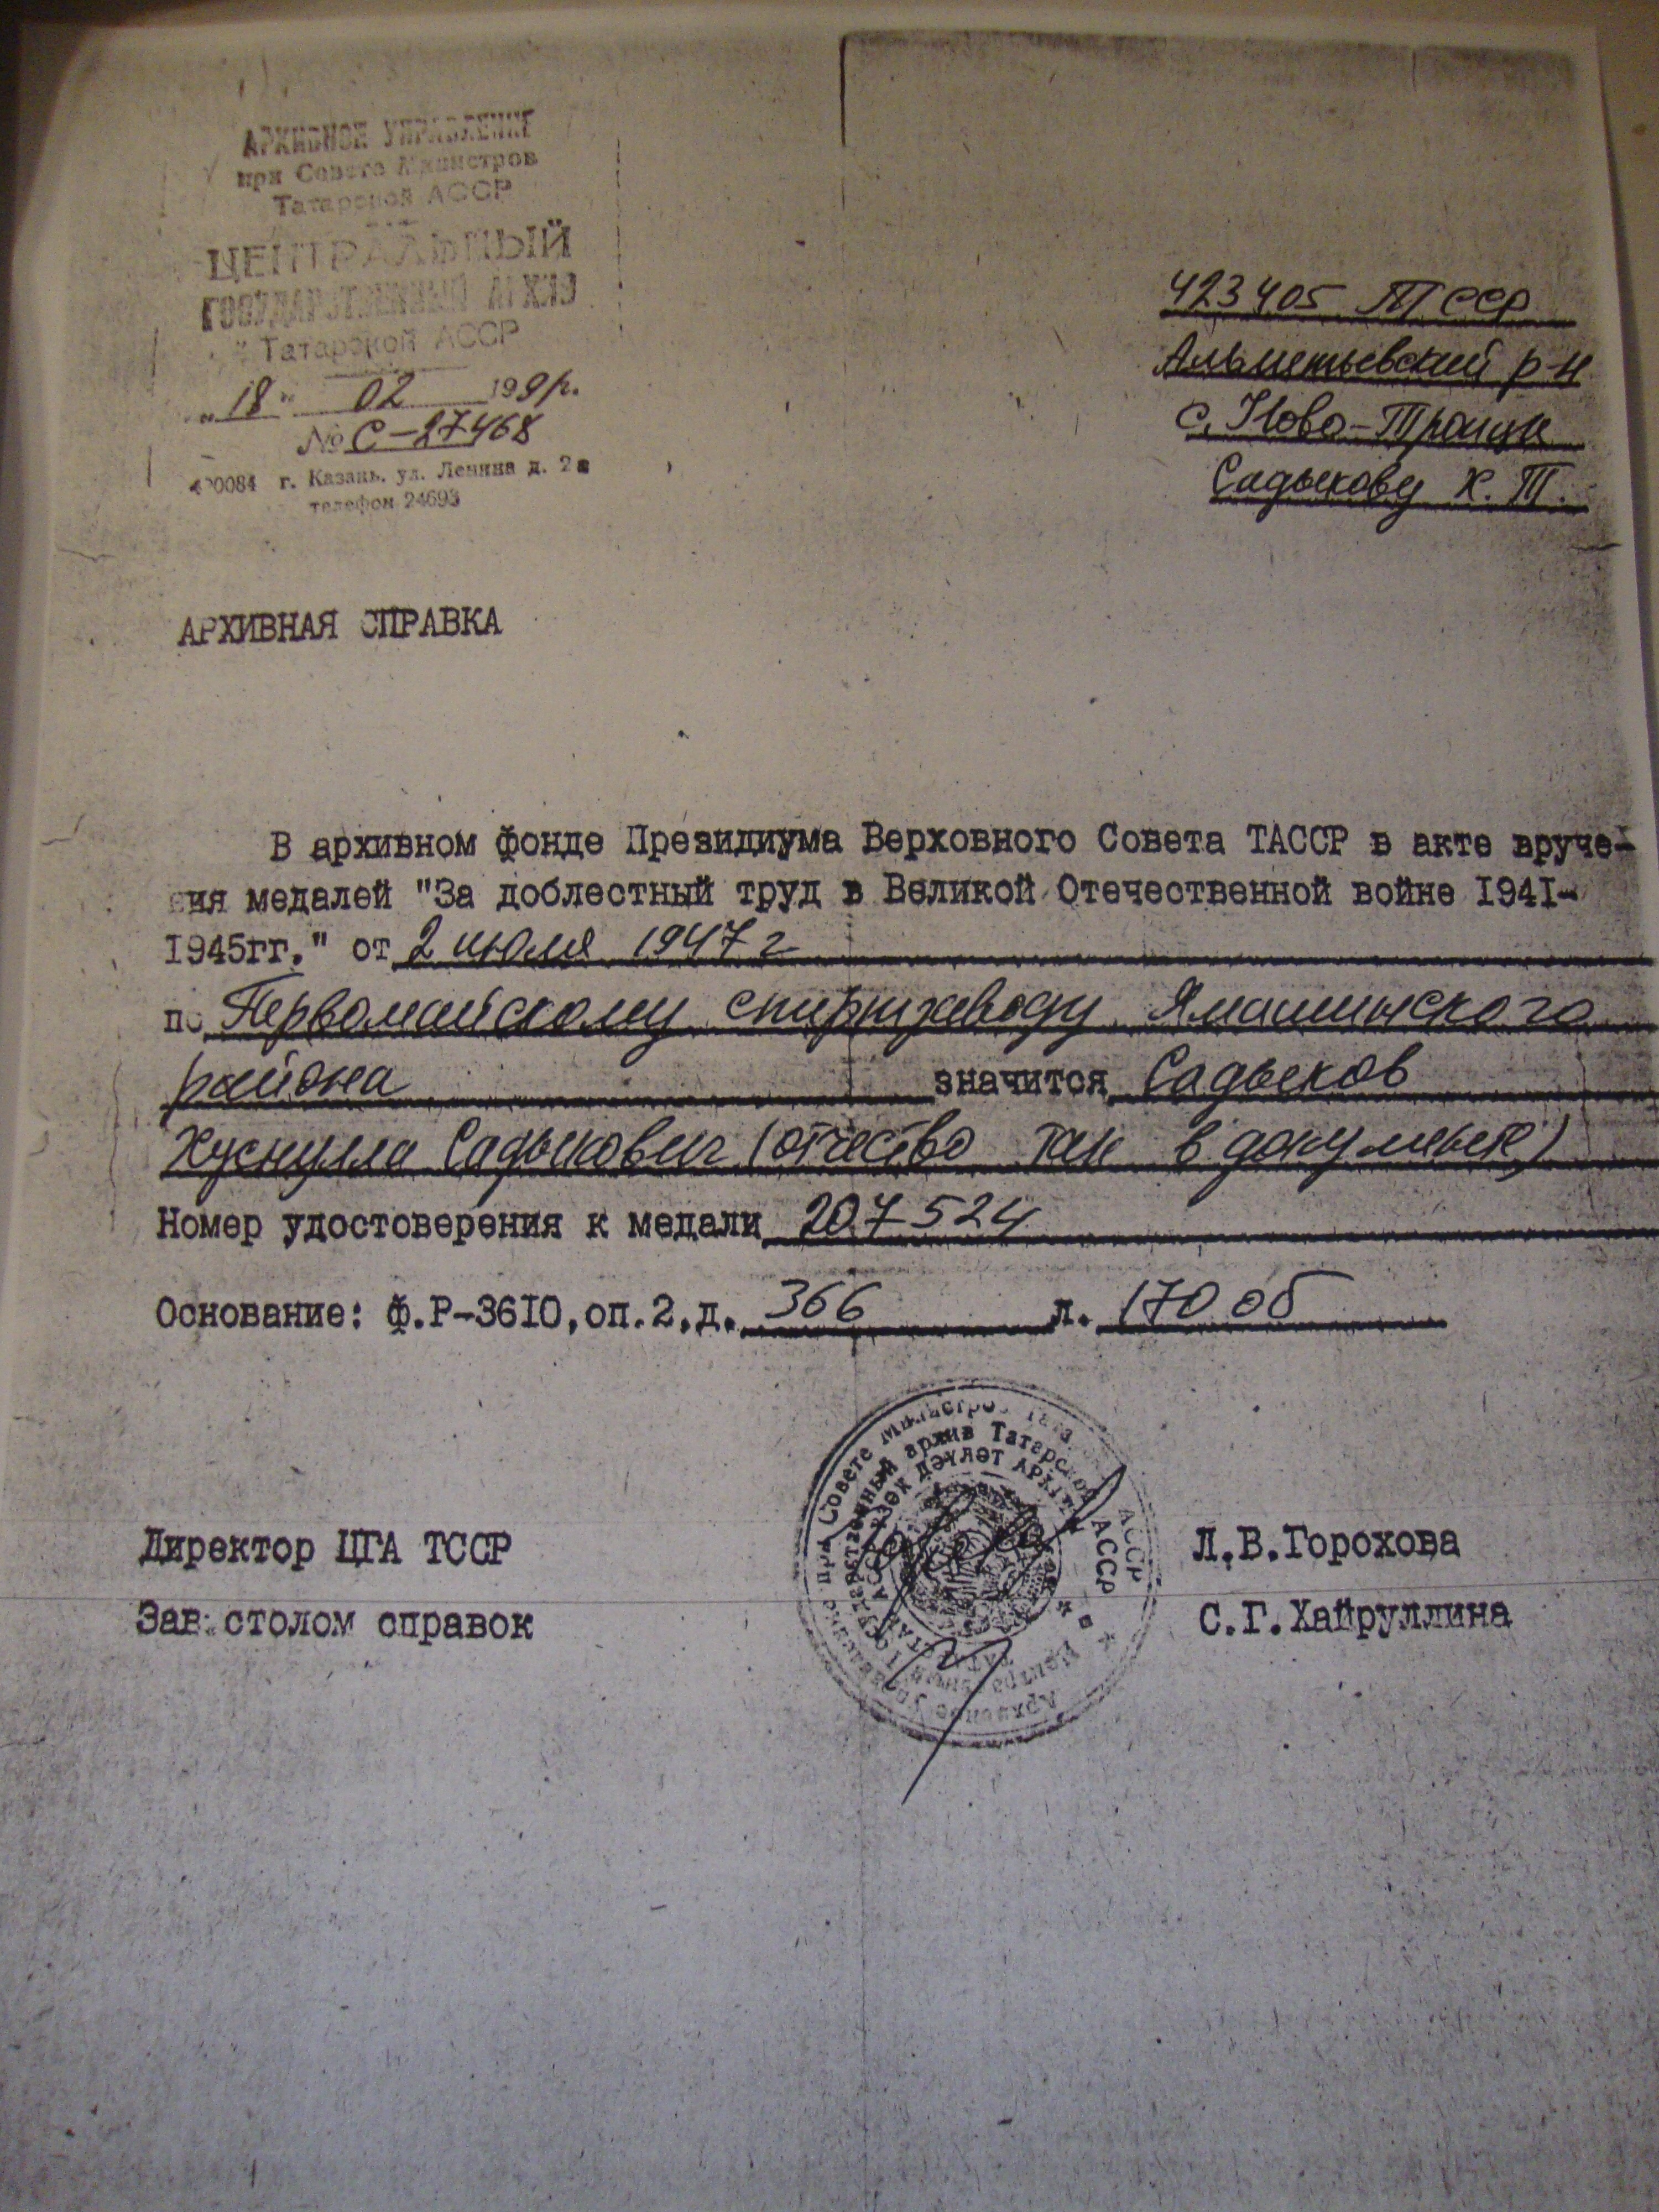 АРХИВНОЕ УПРАВЛЕНИЕ
при Совете Министров
Татарской АССР
ЦЕНТРАЛЬНЫЙ
ГОСУДАРСТВЕННЫЙ АРХИВ
Татарской АССР
"18" 02 199 г.
№ С-27468
г. Казань, ул. Ленина д. 2а
телефон 24693
423405 ТССР
Альметьевский р-н
с. Ново-Троицк
Садыкову Х. Т.
АРХИВНАЯ СПРАВКА
В архивном фонде Президиума Верховного Совета ТАССР в акте вруче-
ния медалей "За доблестный труд в Великой Отечественной войне 1941-
1945гг." от 2 июля 1947 г
по Первомайскому спиртзаводу Ямашинского
района значится Садыков
Хуснулла Садыкович (отчество так в документе)
Номер удостоверения к медали 207524
Основание: Ф.Р-3610,оп.2,д. 366 л. 170 об
при Совете Министров АССР
архив Татарской АССР
дәүләт
Архивное
Директор ЦГА ТССР Л.В.Горохова
Зав. столом справок С.Г.Хайруллина